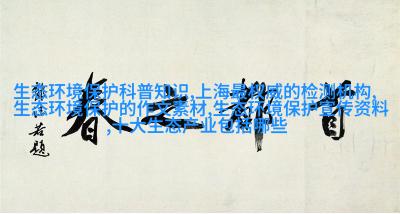 生态环境保护科普知识,上海最权威的检测机构,
生态环境保护的作文素材,生态环境保护宣传资料
,十大生态产业包括哪些
首都之春
郭沫若题